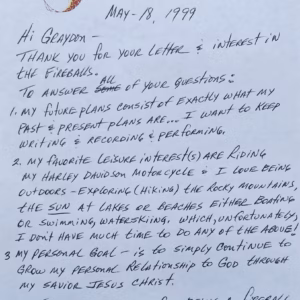 MAY-18, 1999
Hi GRAYDON -
THANK YOU FOR YOUR LETTER & INTEREST IN
the FIREBALLS.
TO ANSWER ALL OF YOUR QUESTIONS:
1. MY FUTURE PLANS CONSIST OF EXACTLY WHAT MY
PAST & PRESENT PLANS ARE... I WANT TO KEEP
WRITING & RECORDING & PERFORMING.
2. MY FAVORITE LEISURE INTEREST(S) ARE RIDING
MY HARLEY DAVIDSON MOTORCYCLE & I LOVE BEING
OUTDOORS - EXPLORING (HIKING) THE ROCKY MOUNTAINS,
THE SUN AT LAKES OR BEACHES EITHER BOATING
OR SWIMMING, WATERSKIING. WHICH, UNFORTUNATELY,
I DON'T HAVE MUCH TIME TO DO ANY OF THE ABOVE!
3 MY PERSONAL GOAL - IS TO SIMPLY CONTINUE TO
GROW MY PERSONAL RELATIONSHIP TO GOD THROUGH
MY SAVIOR JESUS CHRIST.